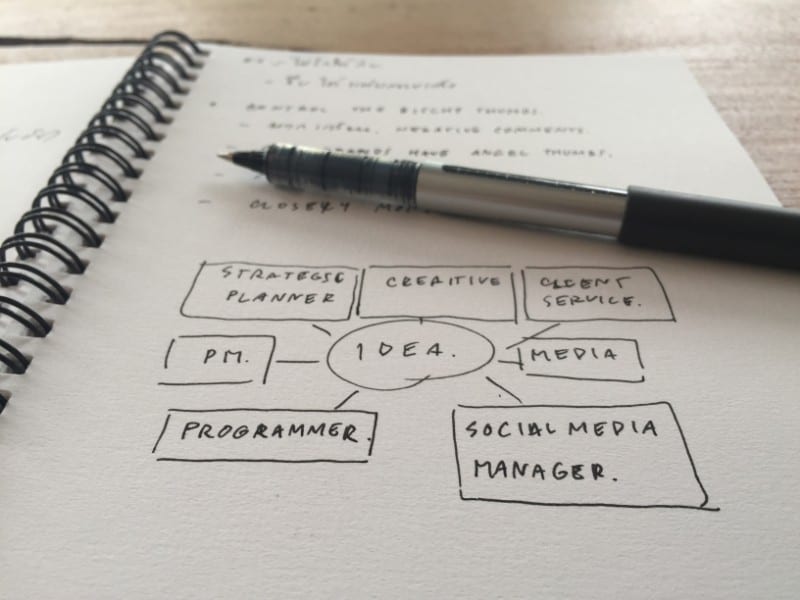 CONTROL THE BITCHY THUMBS.
NEGATIVE COMMENTS.
HAVE ANGEL THUMBS.
CLOSELY
STRATEGIC
PLANNER
CREATIVE
CLIENT
SERVICE.
PM.
IDEA.
MEDIA
PROGRAMMER.
SOCIAL MEDIA
MANAGER.